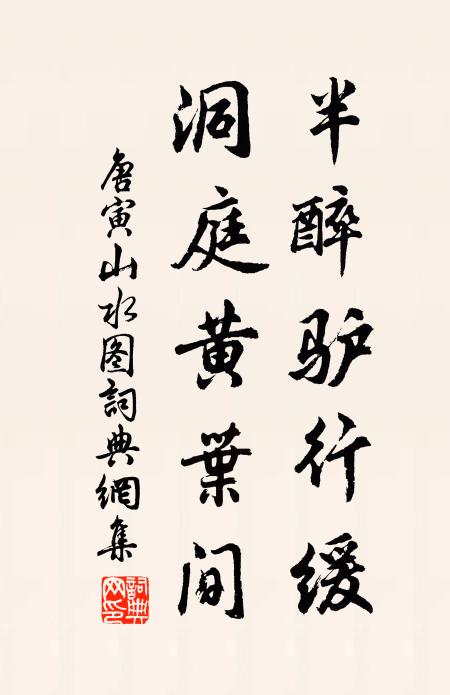 半醉驴行缓
洞庭黄葉间
唐寅山水图詞典網集
詞典网印